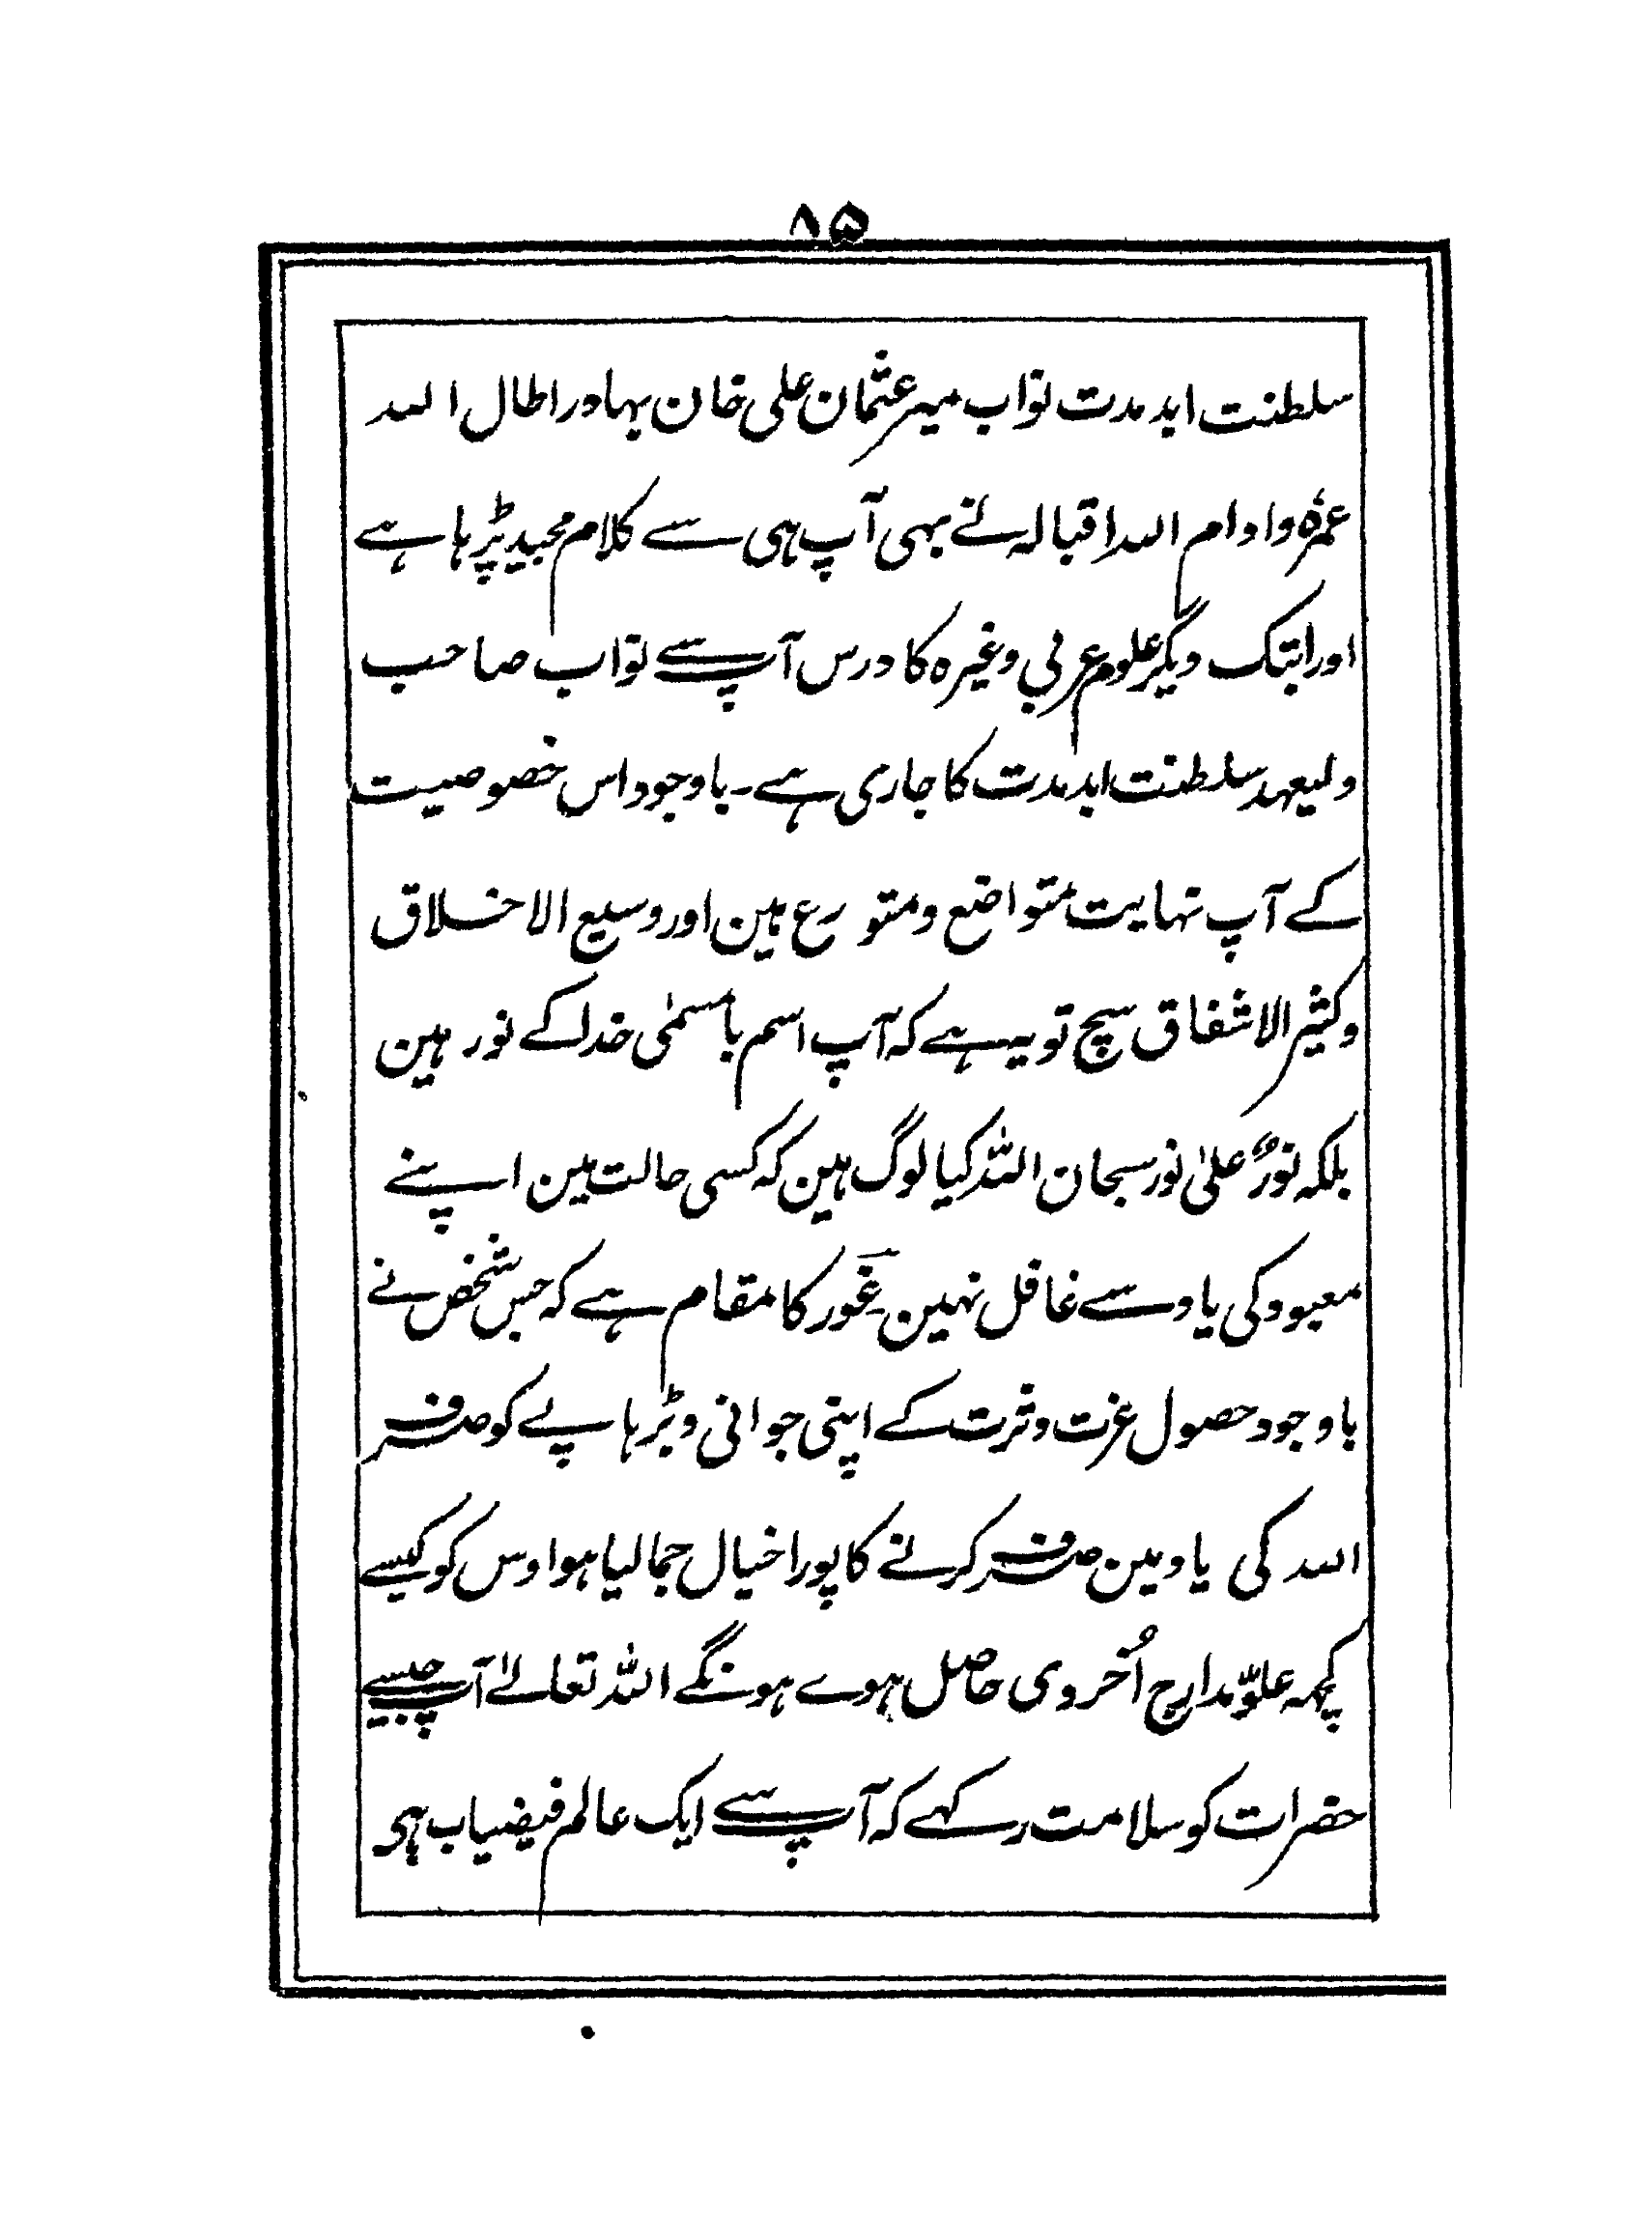 ۸۵
سلطنت ابد مدت نواب میر عثمان علی خان بہادر اطال اللہ
عمرہٗ وادام اللہ اقبالہ نے بھی آپ ہی سے کلام مجید پڑہا ہے
اور ابتک دیگر علوم عربی وغیرہ کا درس آپ سے نواب صاحب
ولیعہد سلطنت ابد مدت کا جاری ہے ۔ باوجود اس خصوصیت
کے آپ نہایت متواضع و متورع ہین اور وسیع الاخلاق
وکثیر الاشفاق سچ تو یہ ہے کہ آپ اسم بامسمٰی خدا کے نور ہین
بلکہ نورٌ علیٰ نور سبحان اللہ کیا لوگ ہین کہ کسی حالت مین اپنے
معبود کی یاد سے غافل نہین ۔ غور کا مقام ہے کہ جس شخص نے
باوجود حصول عزت و ثرت کے اپنی جوانی و بڑہاپے کو صرف
اللہ کی یاد مین صرف کرنے کا پورا خیال جمالیا ہو اوس کو کیسے
کچھہ علوِّ مدارج اُخروی حاصل ہوے ہونگے اللہ تعالےٰ آپ جیسے
حضرات کو سلامت رکہے کہ آپ سے ایک عالم فیضیاب ہی